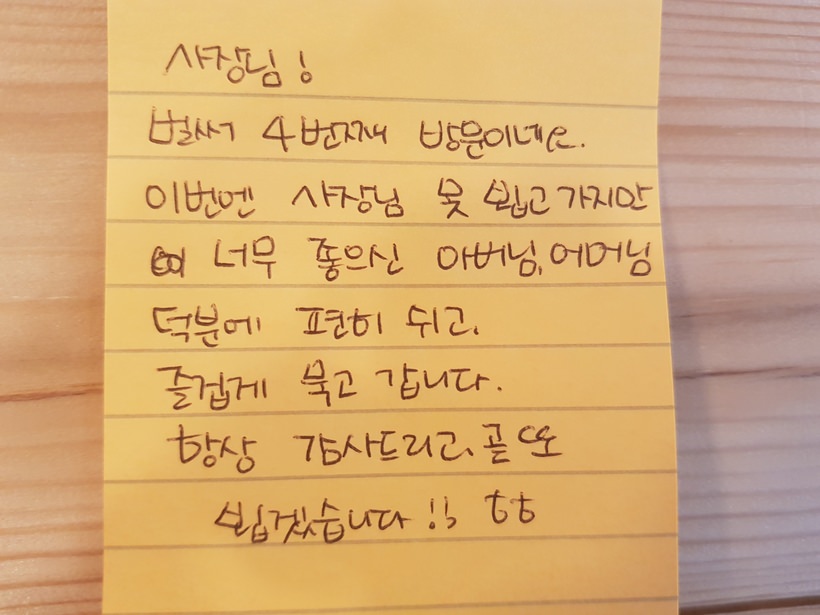 사장님!
벌써 4번째 방문이네요.
이번엔 사장님 못 뵙고 가지만
너무 좋으신 아버님, 어머님
덕분에 편히 쉬고,
즐겁게 묵고 갑니다.
항상 감사드리고, 곧 또
뵙겠습니다!! ㅎㅎ